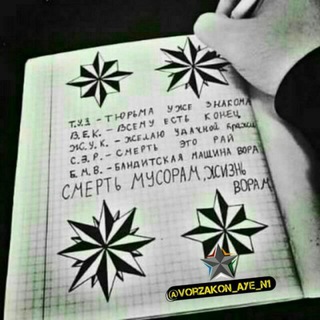 Т.У.З - ТЮРЬМА УЖЕ ЗНАКОМА
В.Е.К. - ВСЕМУ ЕСТЬ КОНЕЦ
Ж.У.К. - ЖЕЛАЮ УДАЧНОЙ КРАЖИ
С.Э.Р. - СМЕРТЬ ЭТО РАЙ
Б.М.В. - БАНДИТСКАЯ МАШИНА ВОРА
СМЕРТЬ МУСОРАМ, ЖИЗНЬ
ВОРАМ
@VORZAKON_AYE_N1